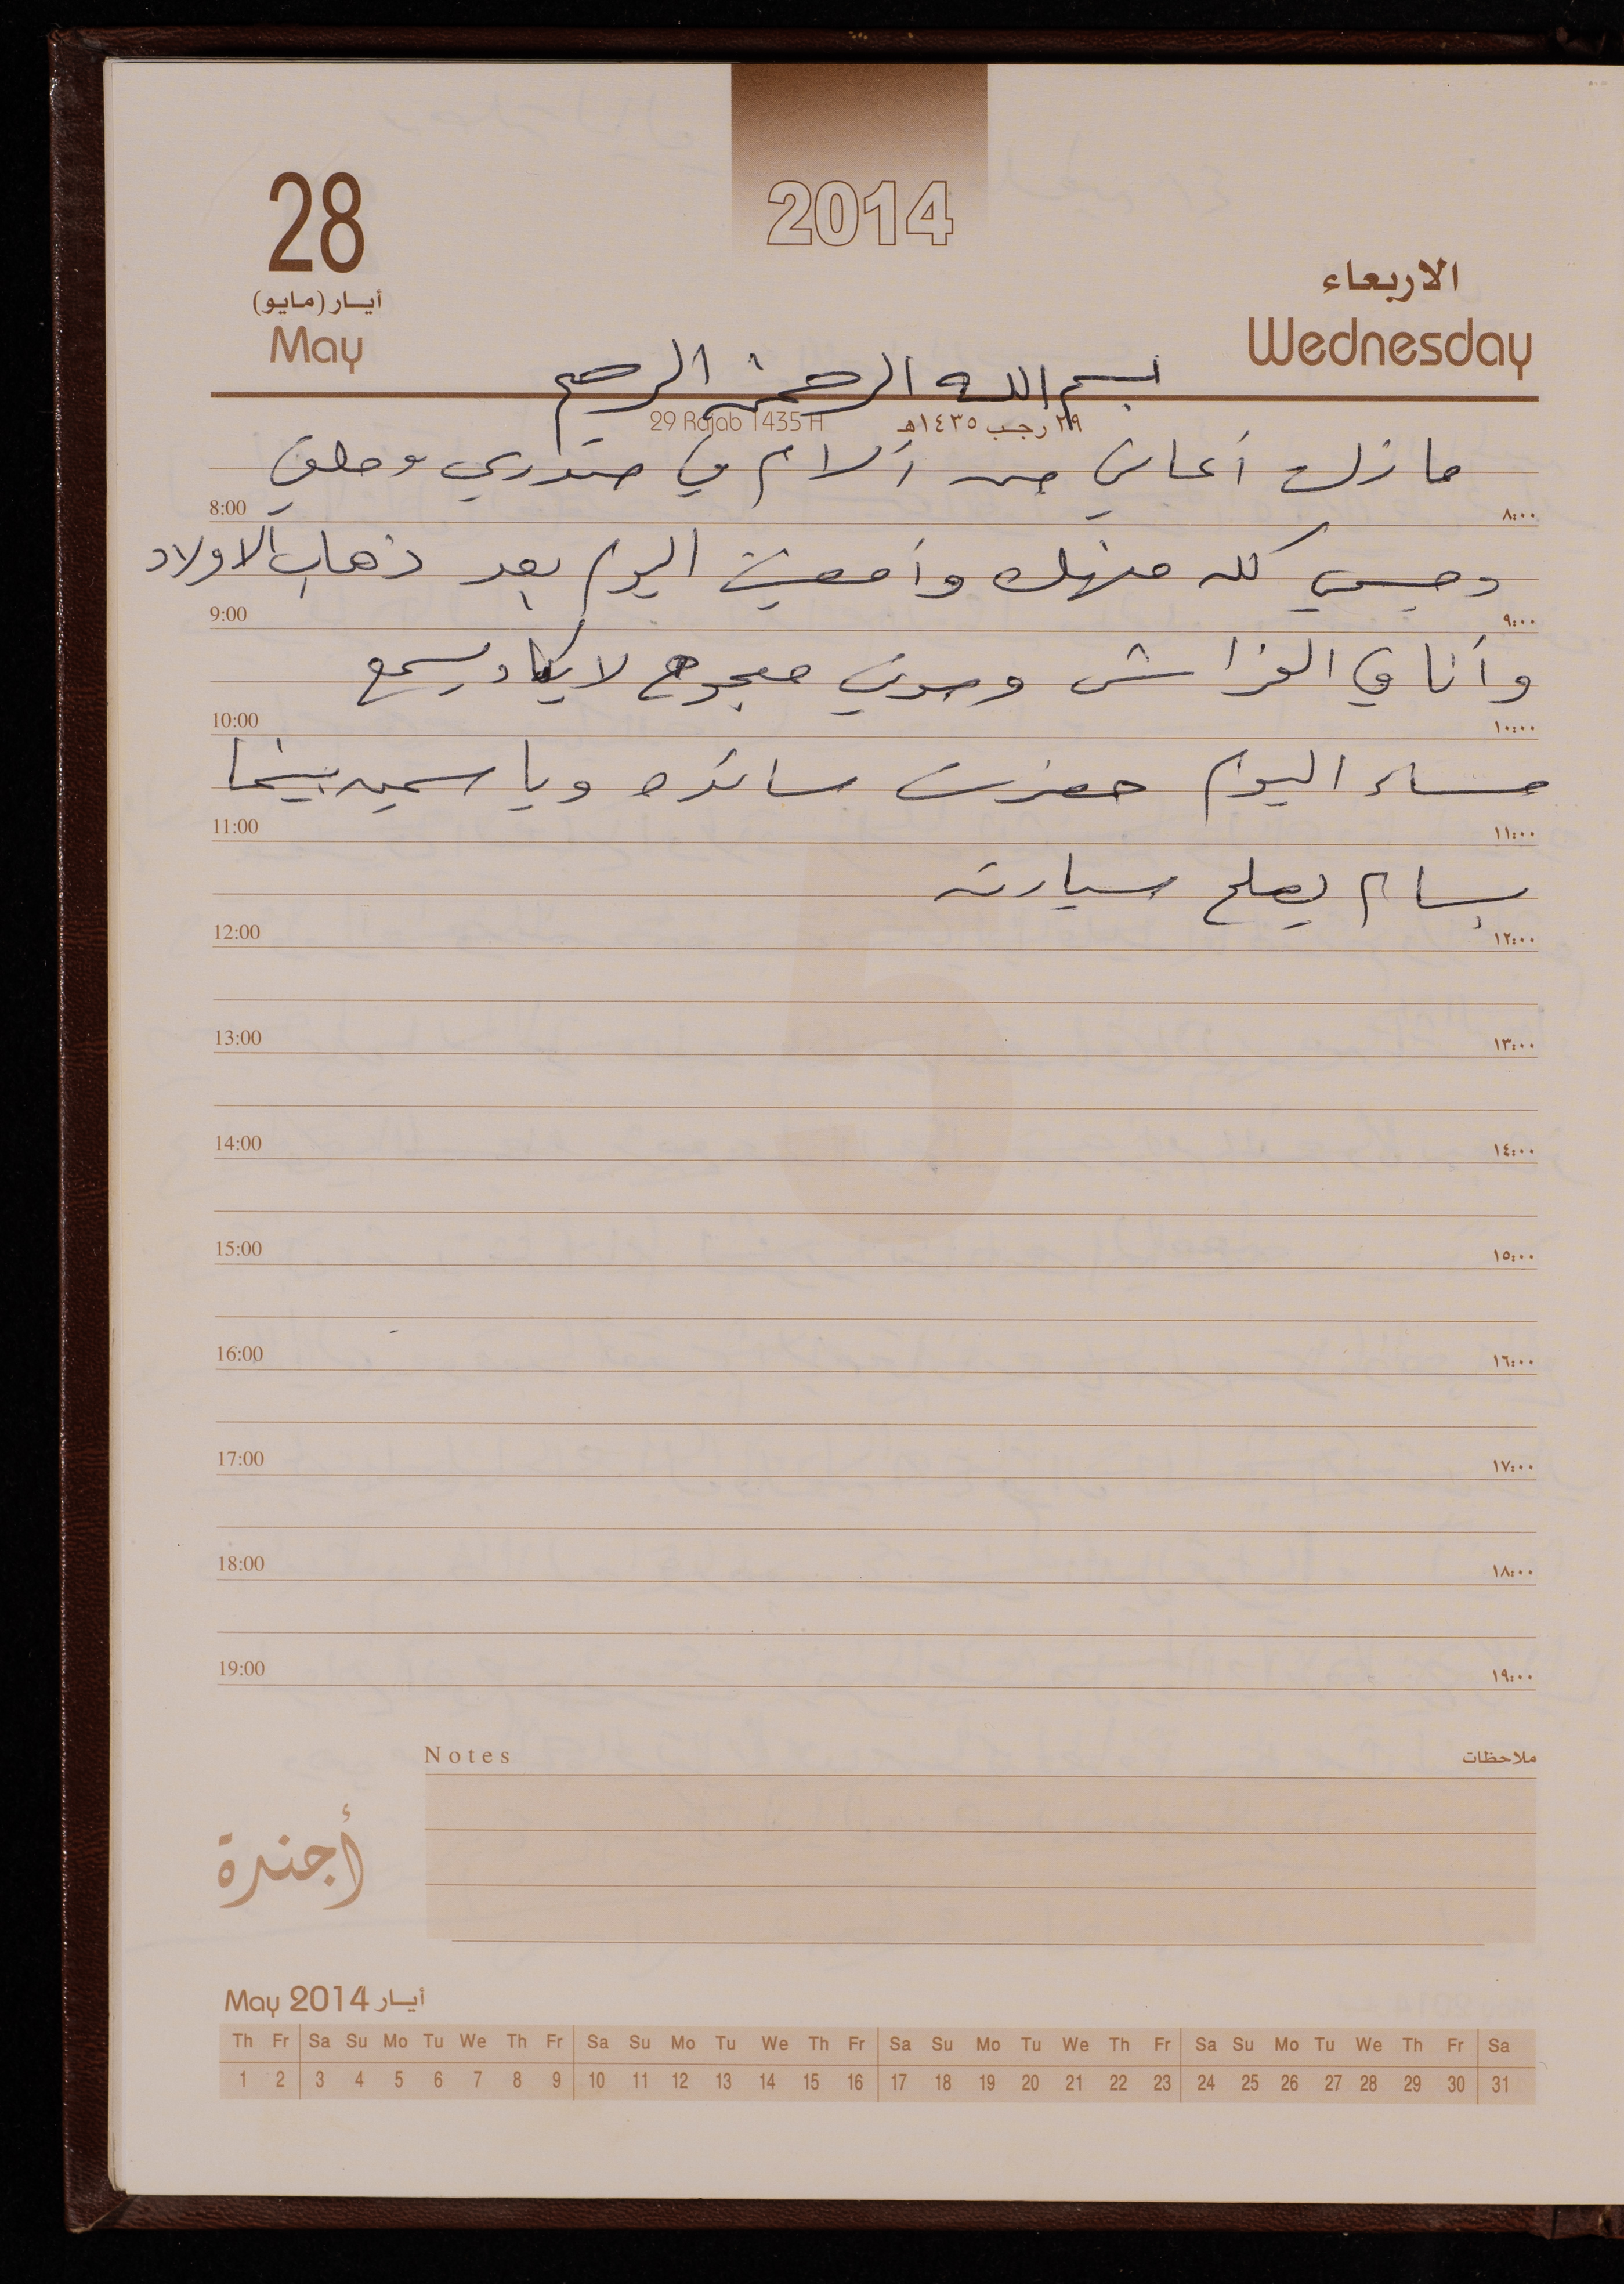 2014
28
أيار (مايو)
May
الاربعاء
Wednesday
بسم الله الرحمن الرحيم
29 Rajab 1435 H ٢٩ رجب ١٤٣٥هـ
ما زلت أعاني من آلام في صدري وحلقي
8:00 ٨:٠٠
وجسمي كله منهك وأمضيت اليوم بعد ذهاب الاولاد
9:00 ٩:٠٠
وأنا في الفراش وصوتي مبحوح لا يكاد يسمع
10:00 ١٠:٠٠
مساء اليوم حضرت سائده وياسمين بينما
11:00 ١١:٠٠
بسام يصلح سيارته
12:00 ١٢:٠٠
13:00 ١٣:٠٠
14:00 ١٤:٠٠
15:00 ١٥:٠٠
16:00 ١٦:٠٠
17:00 ١٧:٠٠
18:00 ١٨:٠٠
19:00 ١٩:٠٠
Notes ملاحظات
أجندة
May 2014 أيار
Th Fr Sa Su Mo Tu We Th Fr Sa Su Mo Tu We Th Fr Sa Su Mo Tu We Th Fr Sa Su Mo Tu We Th Fr Sa
1 2 3 4 5 6 7 8 9 10 11 12 13 14 15 16 17 18 19 20 21 22 23 24 25 26 27 28 29 30 31